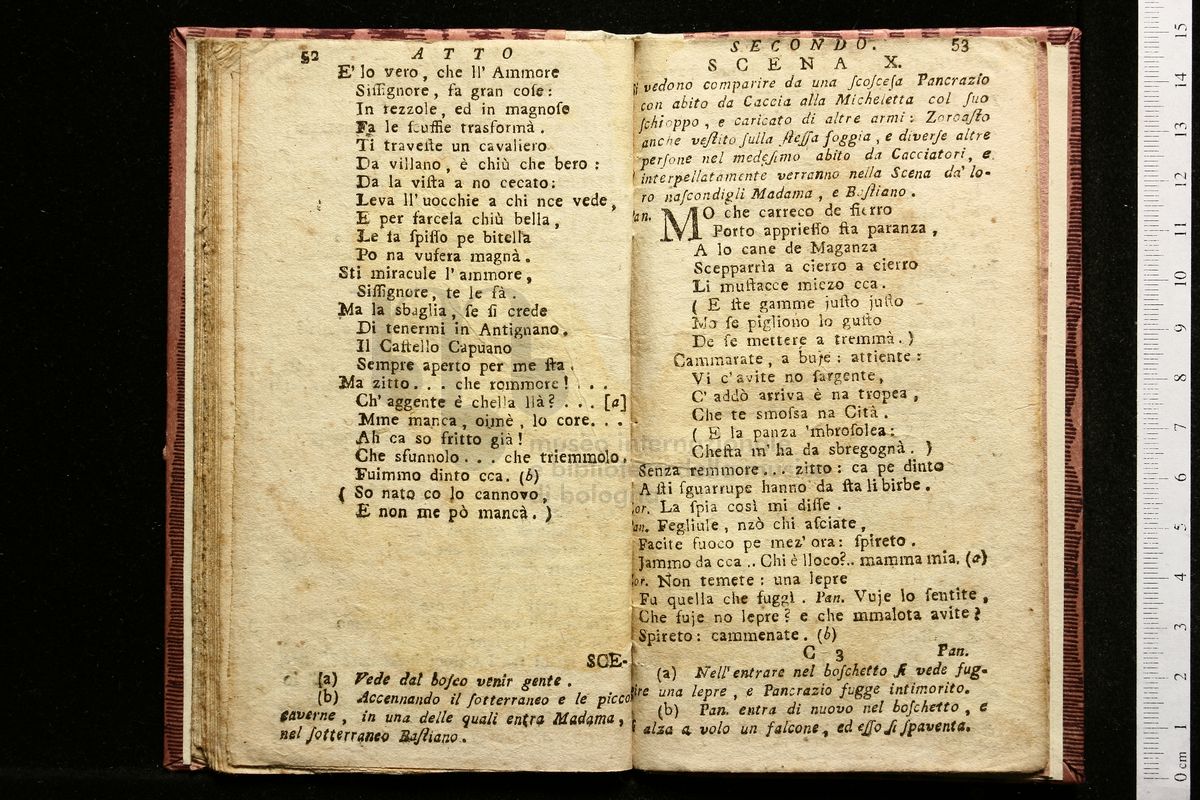 52 ATTO
E' lo vero, che ll' Ammore
Siſſignore, fa gran coſe:
In rezzole, ed in magnoſe
Fa le ſcuffie trasformà.
Ti traveſte un cavaliero
Da villano, è chiù che bero:
Da la viſta a no cecato:
Leva ll' uocchie a chi nce vede,
E per farcela chiù bella,
Le fa ſpiſſo pe bitella
Po na vufera magnà.
Sti miracule l' ammore,
Siſſignore, te le fà.
Ma la sbaglia, ſe ſi crede
Di tenermi in Antignano.
Il Caſtello Capuano
Sempre aperto per me ſta.
Ma zitto... che rommore! ...
Ch' aggente è chella llà? ... [a]
Mme manca, oimè, lo core...
Ah ca so fritto già!
Che sfunnolo... che triemmolo.
Fuimmo dinto cca. (b)
( So nato co lo cannovo,
E non me pò mancà. )
SCE-
(a) Vede dal boſco venir gente.
(b) Accennando il ſotterraneo e le picco
caverne, in una delle quali entra Madama,
nel ſotterraneo Baſtiano.
SECONDO. 53
SCENA X.
Si vedono comparire da una ſcoſceſa Pancrazio
con abito da Caccia alla Micheletta col ſuo
ſchioppo, e caricato di altre armi: Zoroaſto
anche veſtito ſulla ſteſſa foggia, e diverſe altre
perſone nel medeſimo abito da Cacciatori, e
interpellatamente verranno nella Scena da' lo-
ro naſcondigli Madama, e Baſtiano.
Pan. MO che carreco de fierro
Porto apprieſſo ſta paranza,
A lo cane de Maganza
Scepparrìa a cierro a cierro
Li muſtacce miezo cca.
( E ſte gamme juſto juſto
Mo ſe pigliono lo guſto
De ſe mettere a tremmà. )
Cammarate, a buje: attiente:
Vi c' avite no ſargente,
C' addò arriva è na tropea,
Che te smoſsa na Cità.
( E la panza 'mbroſolea:
Cheſta m' ha da sbregognà. )
Senza remmore... zitto: ca pe dinto
A ſti ſguarrupe hanno da ſta li birbe.
Zor. La ſpia così mi diſſe.
Pan. Fegliule, nzò chi aſciate,
Facite fuoco pe mez' ora: ſpireto.
Jammo da cca .. Chi è lloco?.. mamma mia. (a)
Zor. Non temete: una lepre
Fu quella che fuggì. Pan. Vuje lo ſentite,
Che fuje no lepre? e che mmalota avite?
Spireto: cammenate. (b)
C 3 Pan.
(a) Nell' entrare nel boſchetto ſi vede fug-
gire una lepre, e Pancrazio fugge intimorito.
(b) Pan. entra di nuovo nel boſchetto, e
alza a volo un falcone, ed eſſo ſi ſpaventa.
museo internazionale
e biblioteca
di bologna
0 cm 1 2 3 4 5 6 7 8 9 10 11 12 13 14 15